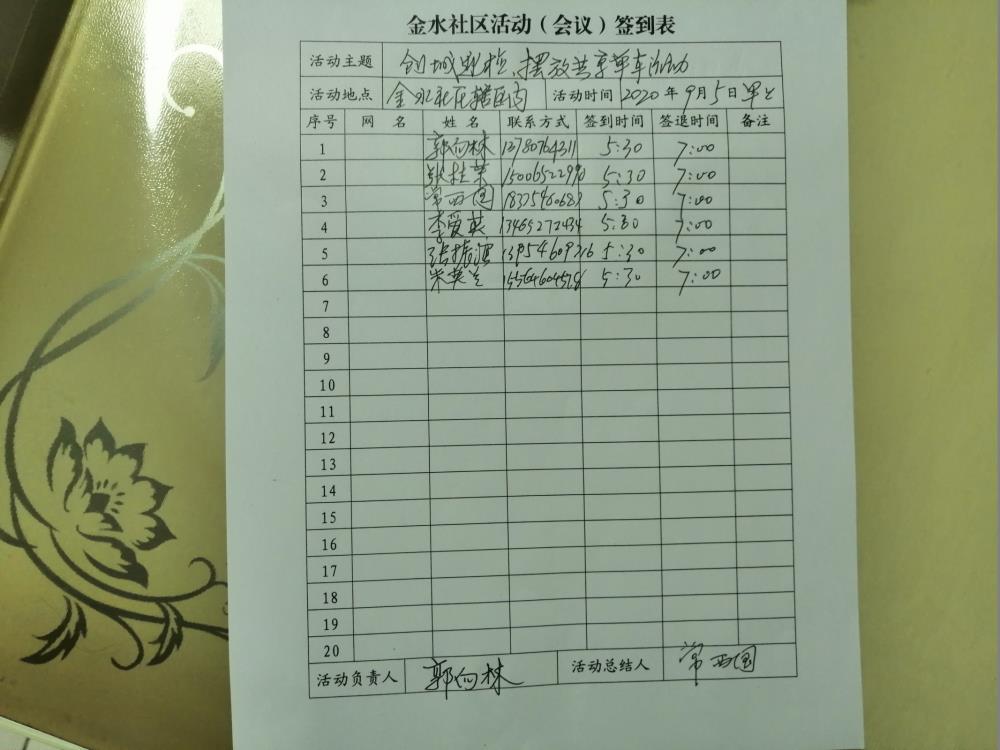 金水社区活动（会议）签到表
活动主题 创城迎检、摆放共享单车活动
活动地点 金水社区辖区内 活动时间 2020年9月5日早上
序号 网 名 姓 名 联系方式 签到时间 签退时间 备注
1 郭向林 13780764311 5:30 7:00
2 张桂荣 15006522990 5:30 7:00
3 常西国 5:30 7:00
4 李爱英 13465272434 5:30 7:00
5 13954609316 5:30 7:00
6 朱英兰 5:30 7:00
7
8
9
10
11
12
13
14
15
16
17
18
19
20
活动负责人 郭向林 活动总结人 常西国